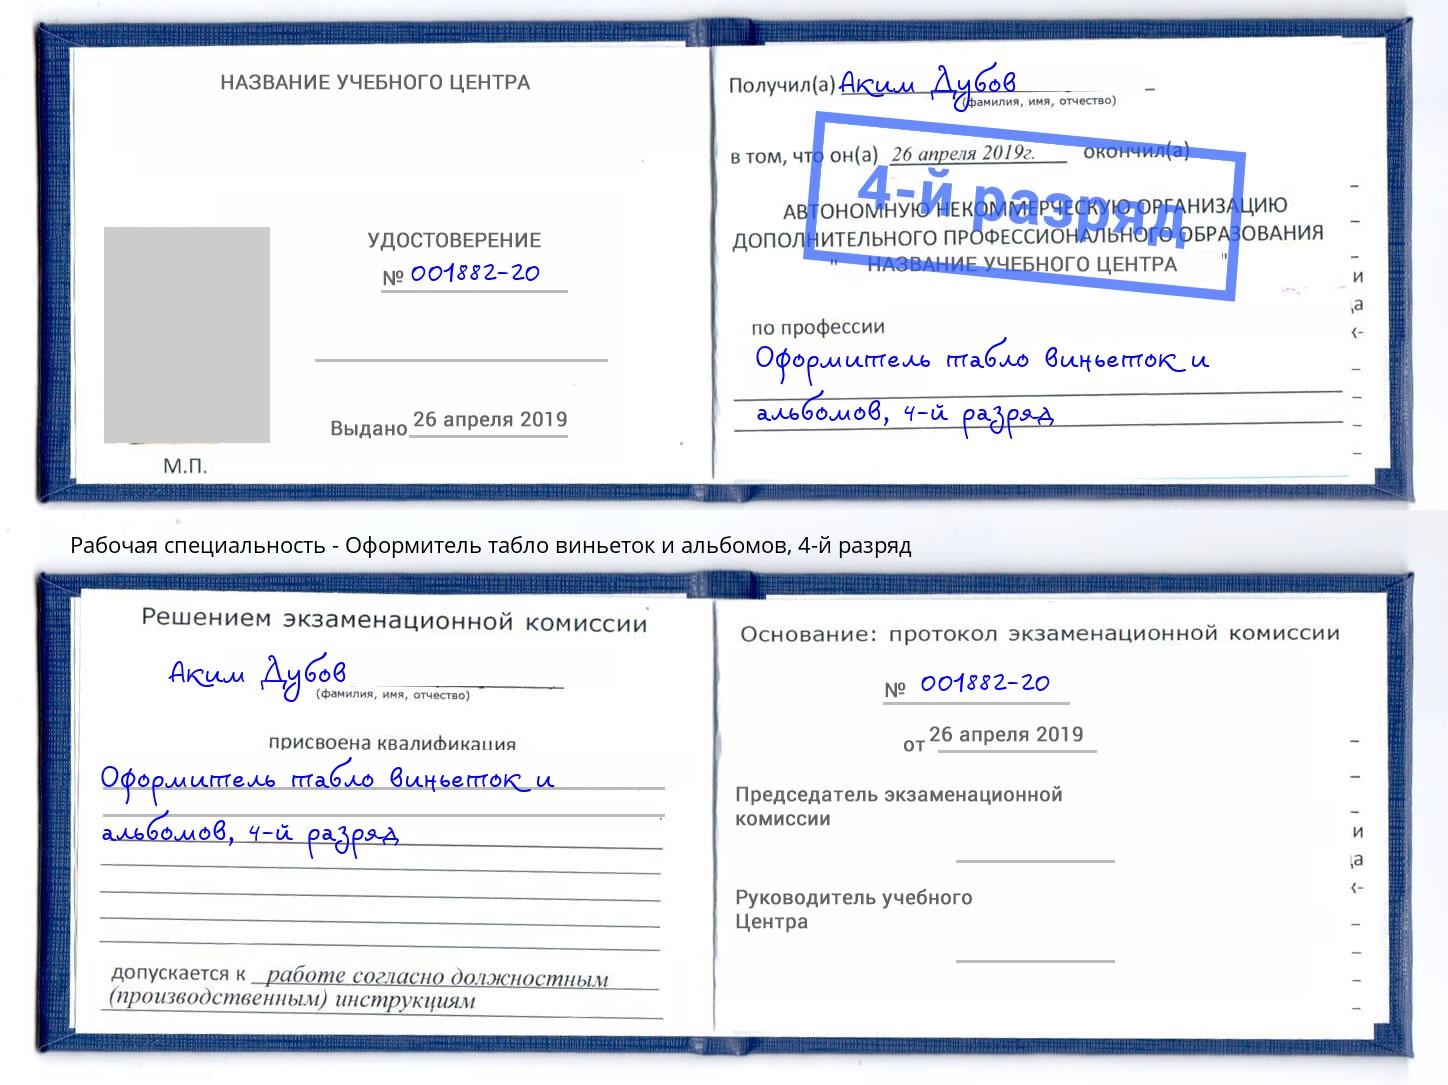 НАЗВАНИЕ УЧЕБНОГО ЦЕНТРА
УДОСТОВЕРЕНИЕ
№ 001882-20
Выдано 26 апреля 2019
М.П.
Получил(а) Аким Дубов
(фамилия, имя, отчество)
в том, что он(а) 26 апреля 2019г. окончил(а)
4-й разряд
АВТОНОМНУЮ НЕКОММЕРЧЕСКУЮ ОРГАНИЗАЦИЮ
ДОПОЛНИТЕЛЬНОГО ПРОФЕССИОНАЛЬНОГО ОБРАЗОВАНИЯ
" НАЗВАНИЕ УЧЕБНОГО ЦЕНТРА "
по профессии
Оформитель табло виньеток и
альбомов, 4-й разряд
Рабочая специальность - Оформитель табло виньеток и альбомов, 4-й разряд
Решением экзаменационной комиссии
Аким Дубов
(фамилия, имя, отчество)
присвоена квалификация
Оформитель табло виньеток и
альбомов, 4-й разряд
допускается к работе согласно должностным
(производственным) инструкциям
Основание: протокол экзаменационной комиссии
№ 001882-20
от 26 апреля 2019
Председатель экзаменационной
комиссии
Руководитель учебного
Центра